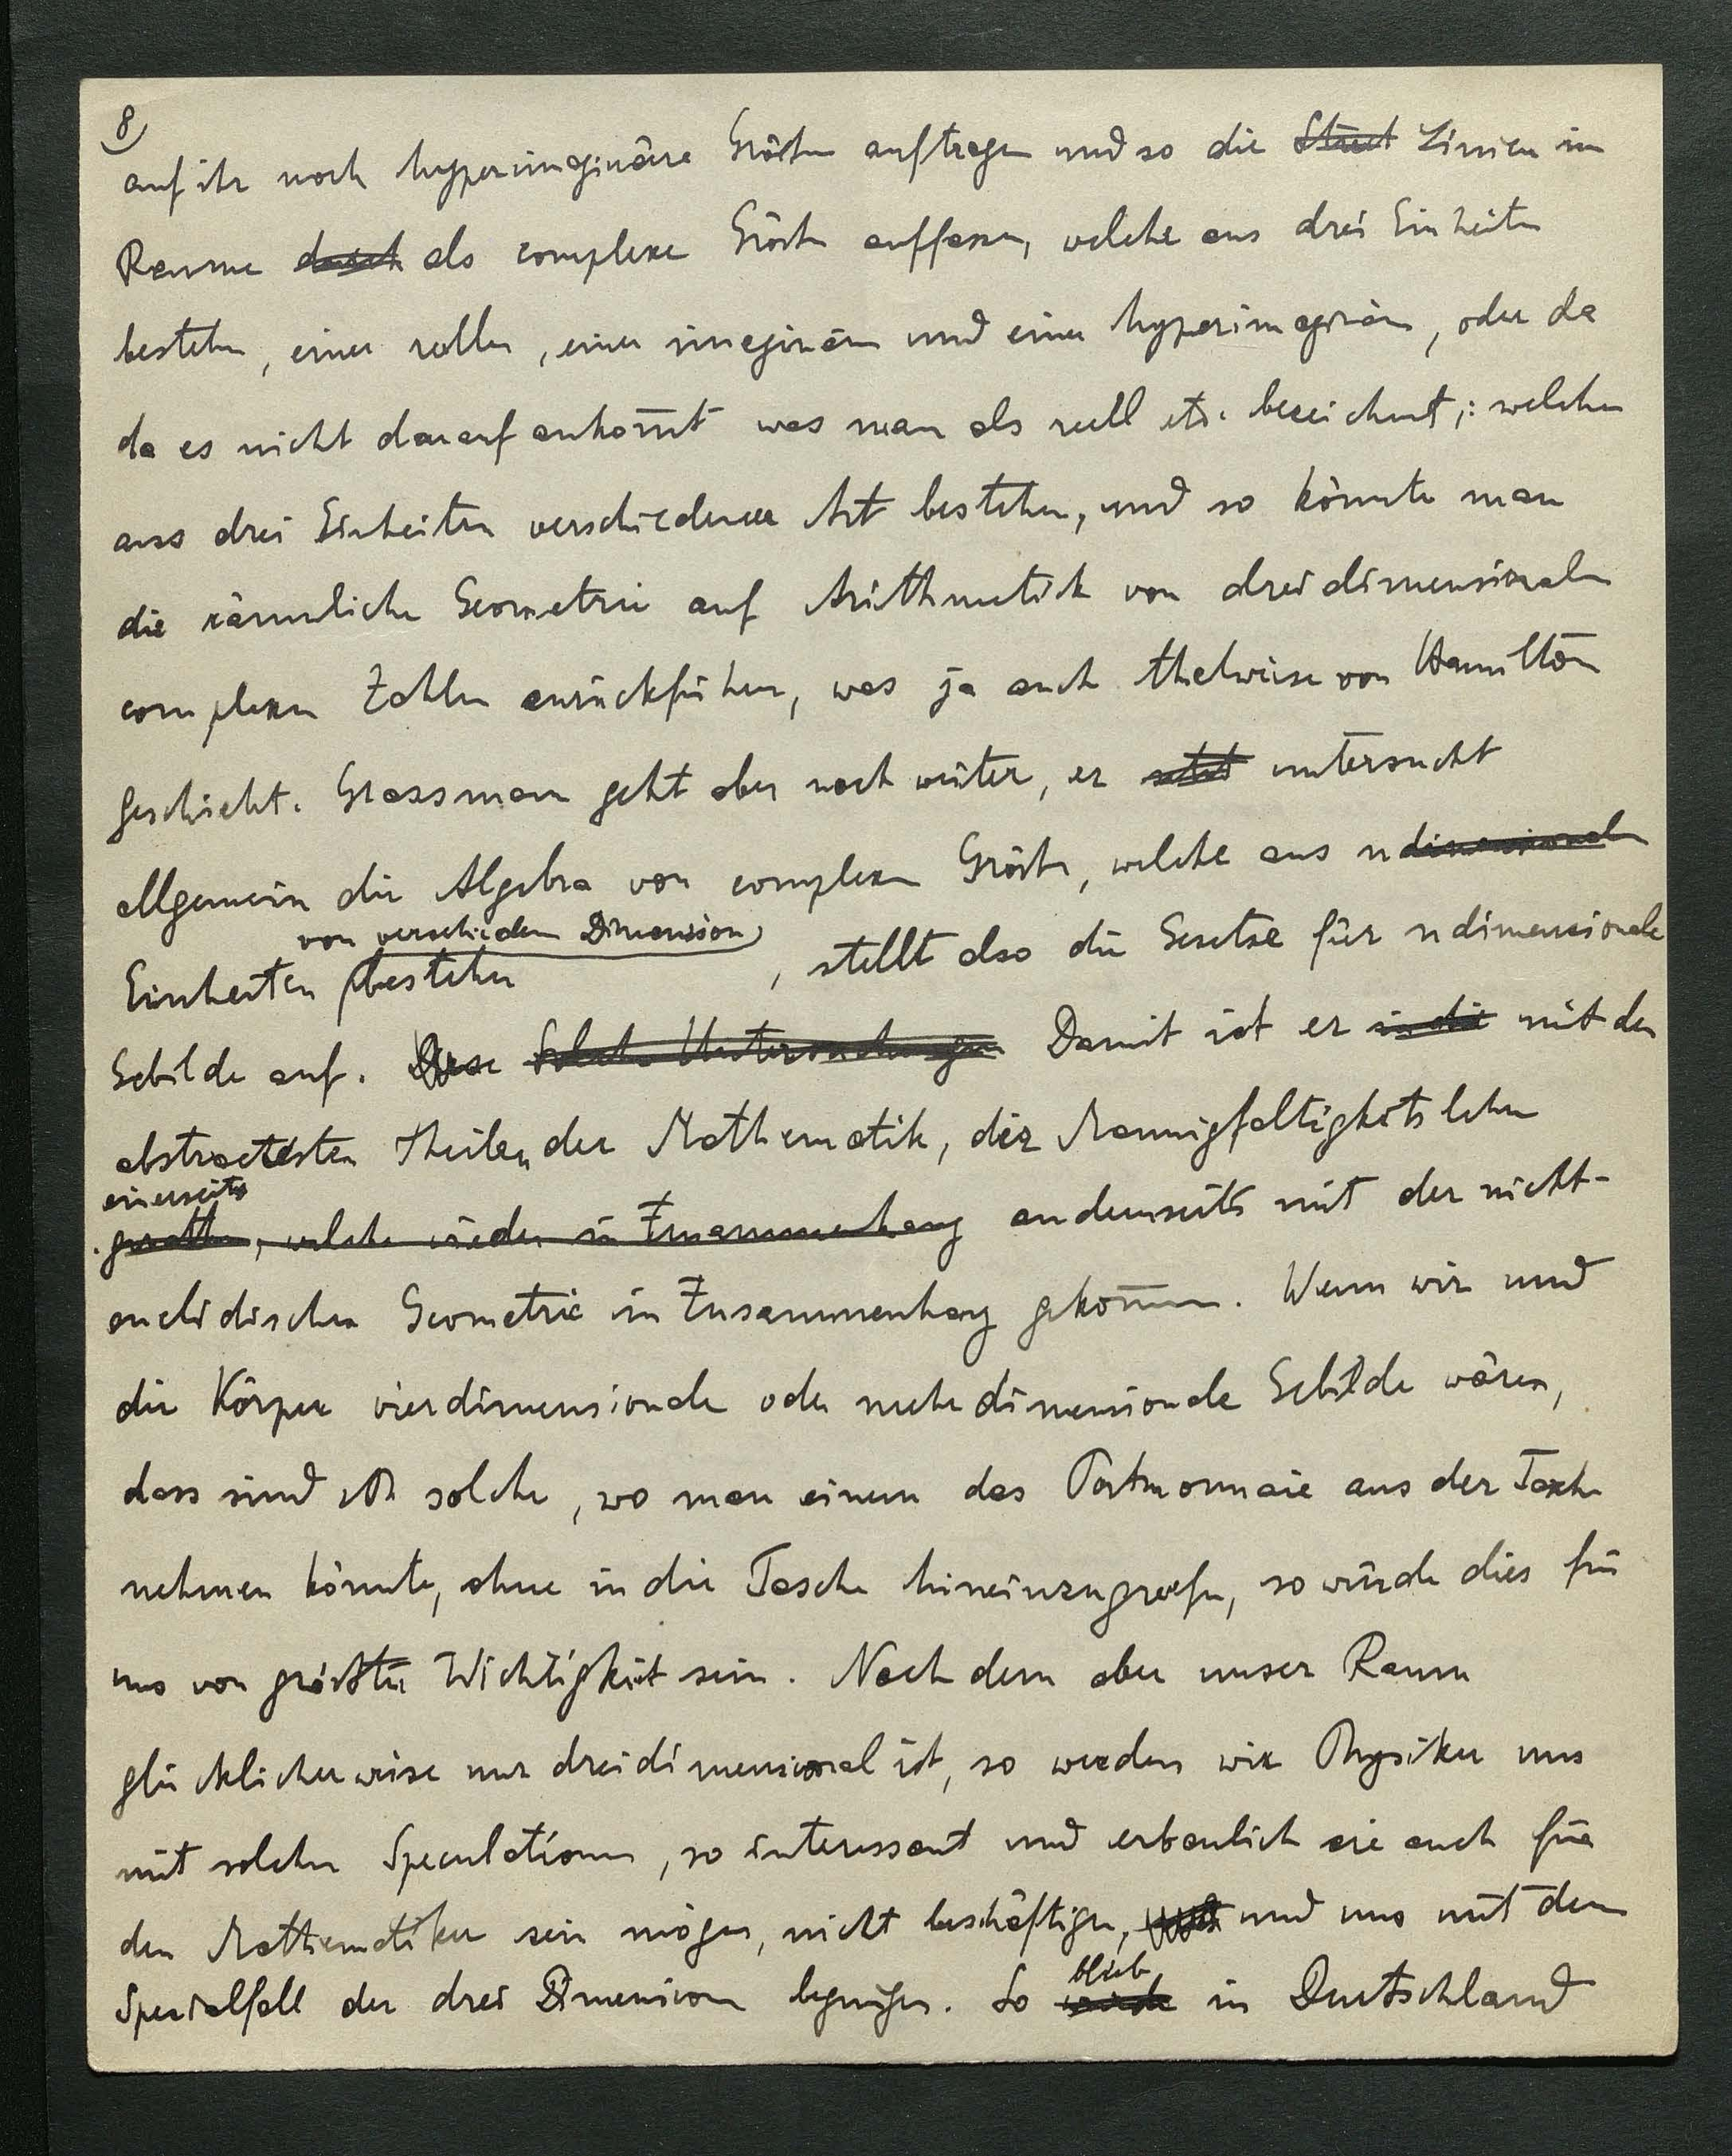 8)
auf ihr noch hyperimaginäre Größen auftragen und so die Linien im
Raume durch als complexe Größen auffassen, welche aus drei Einheiten
bestehen, einer reellen, einer imaginären und einer hyperimaginären, oder da
da es nicht darauf ankom̅t was man als reell etc. bezeichnet; welche
aus drei Einheiten verschiedener Art bestehen, und so könnte man
die räumliche Geometrie auf Arithmetik von dreidimensionalen
complexen Zahlen zurückführen, was ja auch theilweise von Hamilton
geschieht. Grassmann geht aber noch weiter, er untersucht
allgemein die Algebra von complexen Größen, welche aus n dimensionalen
von verschiedenen Dimension
Einheiten bestehen , stellt also die Gesetze für n dimensionale
Gebilde auf. Diese Solche Untersuchungen Damit ist er in die mit den
abstractesten Theilen der Mathematik, der Mannigfaltigkeitslehre
einerseits
gerathen, welche wieder in Zusammenhang anderseits mit der nicht-
euclidischen Geometrie in Zusammenhang gekom̅en. Wenn wir und
die Körper vierdimensionale oder mehrdimensionale Gebilde wären,
dass sind solche, wo man einem das Portmonnaie aus der Tasche
nehmen könnte, ohne in die Tasche hineinzugreifen, so würde dies für
uns von größter Wichtigkeit sein. Nach dem aber unser Raum
glücklicherweise nur dreidimensional ist, so werden wir Physiker uns
mit solchen Speculationen, so interessant und erbaulich sie auch für
den Mathematiker sein mögen, nicht beschäftigen, und uns mit dem
blieb
Specialfall der drei Dimensionen begnügen. So wurde in Deutschland